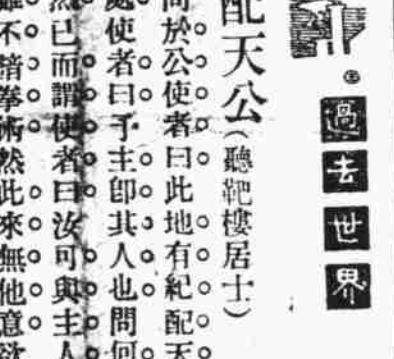 過去世界
配天公(聽靶樓居士)
於公使者曰此地有紀配天
使者曰予主卽其人也問何
然已而謂使者曰汝可與主人
雖不諳拳術然此來無他意欲